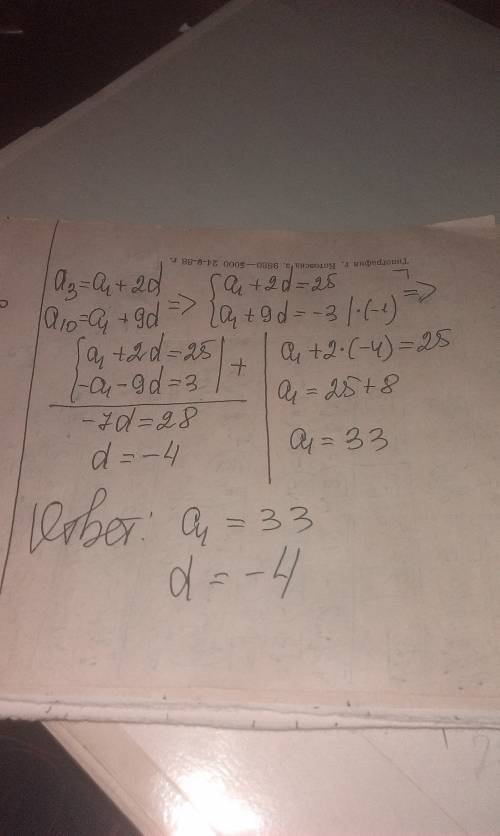 Типография г. Котовска з. 9880—5000 24-9-88 г.
a₃=a₁+2d
a₁₀=a₁+9d => {a₁+2d=25
a₁+9d=-3 |·(-1) =>
{a₁+2d=25
-a₁-9d=3 | +
-7d=28
d=-4
a₁+2·(-4)=25
a₁=25+8
a₁=33
Ответ: a₁=33
d=-4